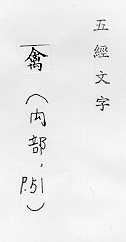 五經文字
禽
(内部,P.51)